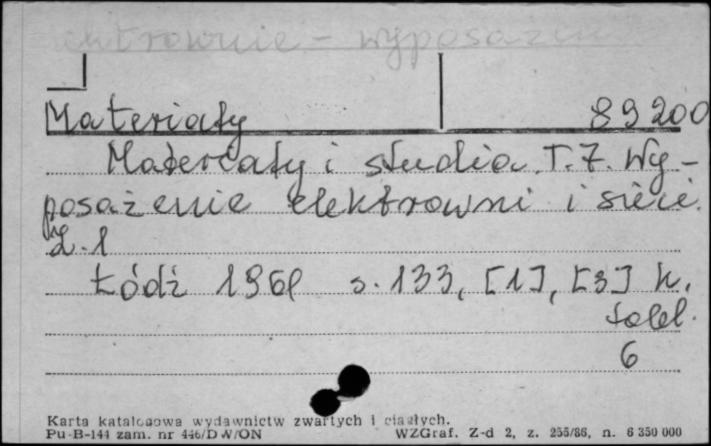 elektrownie - wyposażenie
Materiały 89200
Materiały i studia. T. 7. Wy-
posażenie elektrowni i sieci.
Z. 1
Łódź 1960 s. 133, [1], [3] k.
tabl.
6
Karta katalogowa wydawnictw zwartych i ciągłych.
Pu-B-144 zam. nr 446/DW/ON WZGraf. Z-d 2, z. 255/86, n. 6 350 000